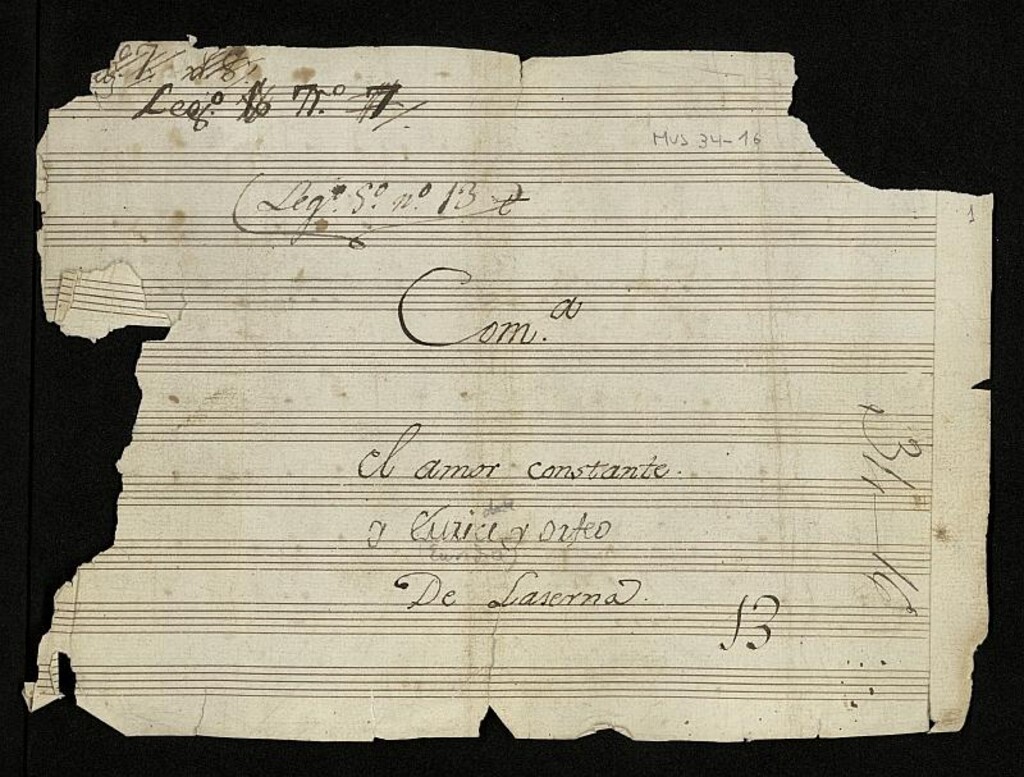 7. 8.
Leg.º 16 n.º 7
MUS 34-16
1
Leg.º 5.º n.º 13
Com.ª
El amor constante.
y Eurici y orfeo
De Laserna.
13
34-16